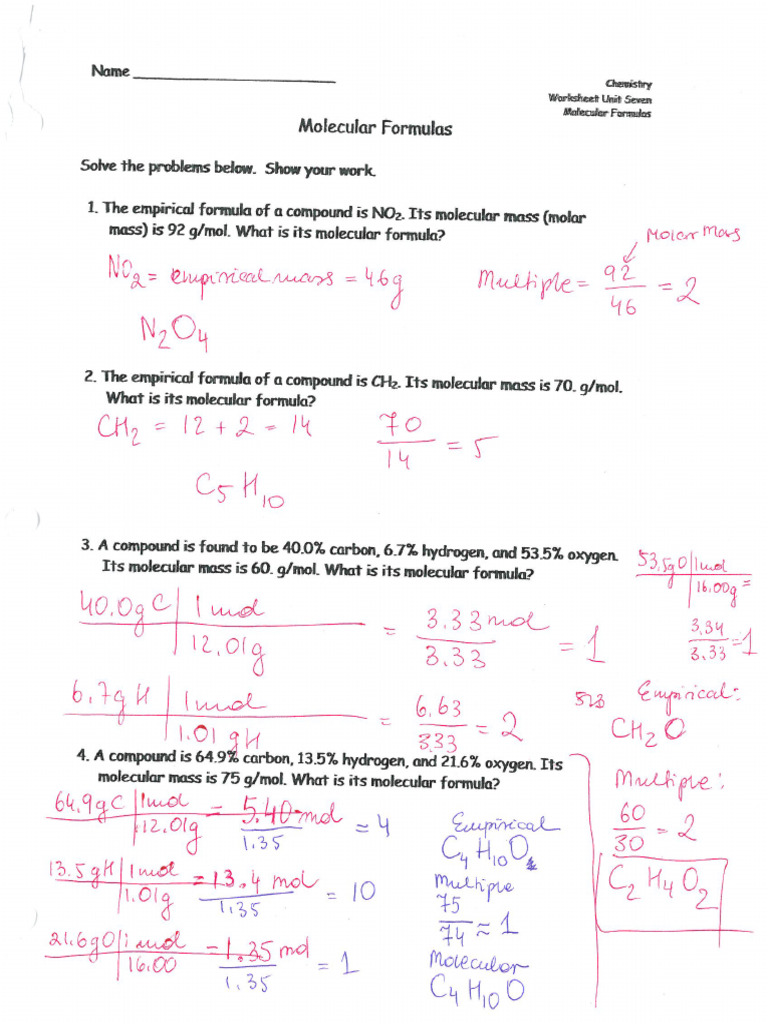 Name ____________________
Chemistry
Worksheet Unit Seven
Molecular Formulas
Molecular Formulas
Solve the problems below. Show your work.
1. The empirical formula of a compound is NO₂. Its molecular mass (molar
mass) is 92 g/mol. What is its molecular formula?
Molar Mass
NO₂ = empirical mass = 46g
Multiple = 92/46 = 2
N₂O₄
2. The empirical formula of a compound is CH₂. Its molecular mass is 70. g/mol.
What is its molecular formula?
CH₂ = 12 + 2 = 14
70/14 = 5
C₅H₁₀
3. A compound is found to be 40.0% carbon, 6.7% hydrogen, and 53.5% oxygen.
Its molecular mass is 60. g/mol. What is its molecular formula?
53,5gO | 1mol
16.00g =
3.34/3.33 = 1
40.0gC | 1mol
12.01g
= 3.33mol/3.33 = 1
6.7gH | 1mol
1.01gH
= 6.63/3.33 = 2
Empirical:
CH₂O
Multiple:
60/30 = 2
C₂H₄O₂
4. A compound is 64.9% carbon, 13.5% hydrogen, and 21.6% oxygen. Its
molecular mass is 75 g/mol. What is its molecular formula?
64.9gC | 1mol
12.01g
= 5.40 mol/1.35 = 4
13.5gH | 1mol
1.01g
= 13.4 mol/1.35 = 10
21.6gO | 1mol
16.00
= 1.35 mol/1.35 = 1
Empirical
C₄H₁₀O
Multiple
75/74 ≈ 1
Molecular
C₄H₁₀O